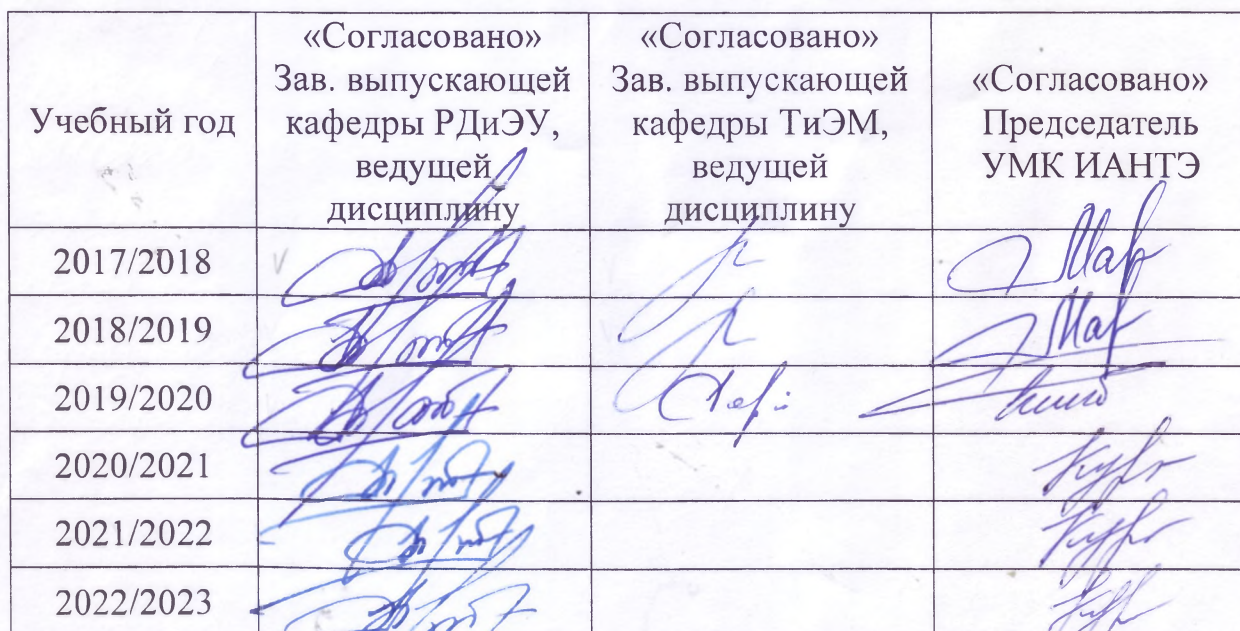 Учебный год
«Согласовано»
Зав. выпускающей
кафедры РДиЭУ,
ведущей
дисциплину
«Согласовано»
Зав. выпускающей
кафедры ТиЭМ,
ведущей
дисциплину
«Согласовано»
Председатель
УМК ИАНТЭ
2017/2018
2018/2019
2019/2020
2020/2021
2021/2022
2022/2023